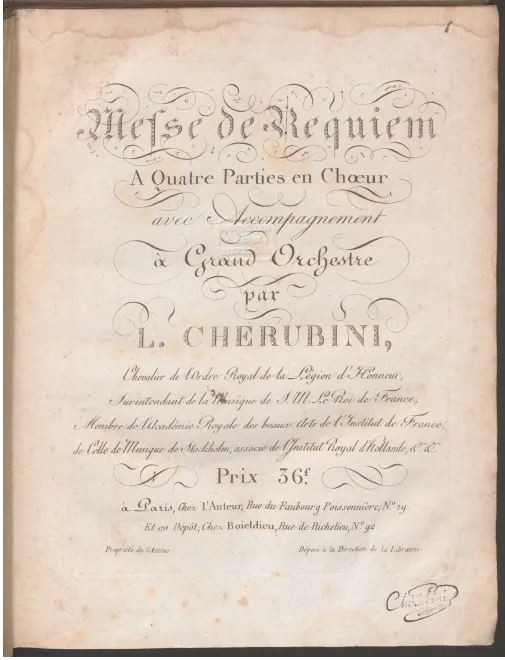 Messe de Requiem
A Quatre Parties en Chœur
avec Accompagnement
à Grand Orchestre
par
L. CHERUBINI,
Chevalier de l'Ordre Royal de la Légion d'Honneur,
Surintendant de la Musique de S. M. Le Roi de France,
Membre de l'Académie Royale des beaux Arts de l'Institut de France,
de Celle de Musique de Stockholm, associé de l'Institut Royal d'Hollande, &c. &c.
Prix 36f.
à Paris, Chez l'Auteur, Rue du Faubourg Poissonnière, No. 19.
Et en Dépôt, Chez Boieldieu, Rue de Richelieu, No. 92.
Propriété de l'Auteur Déposé à la Direction de la Librairie